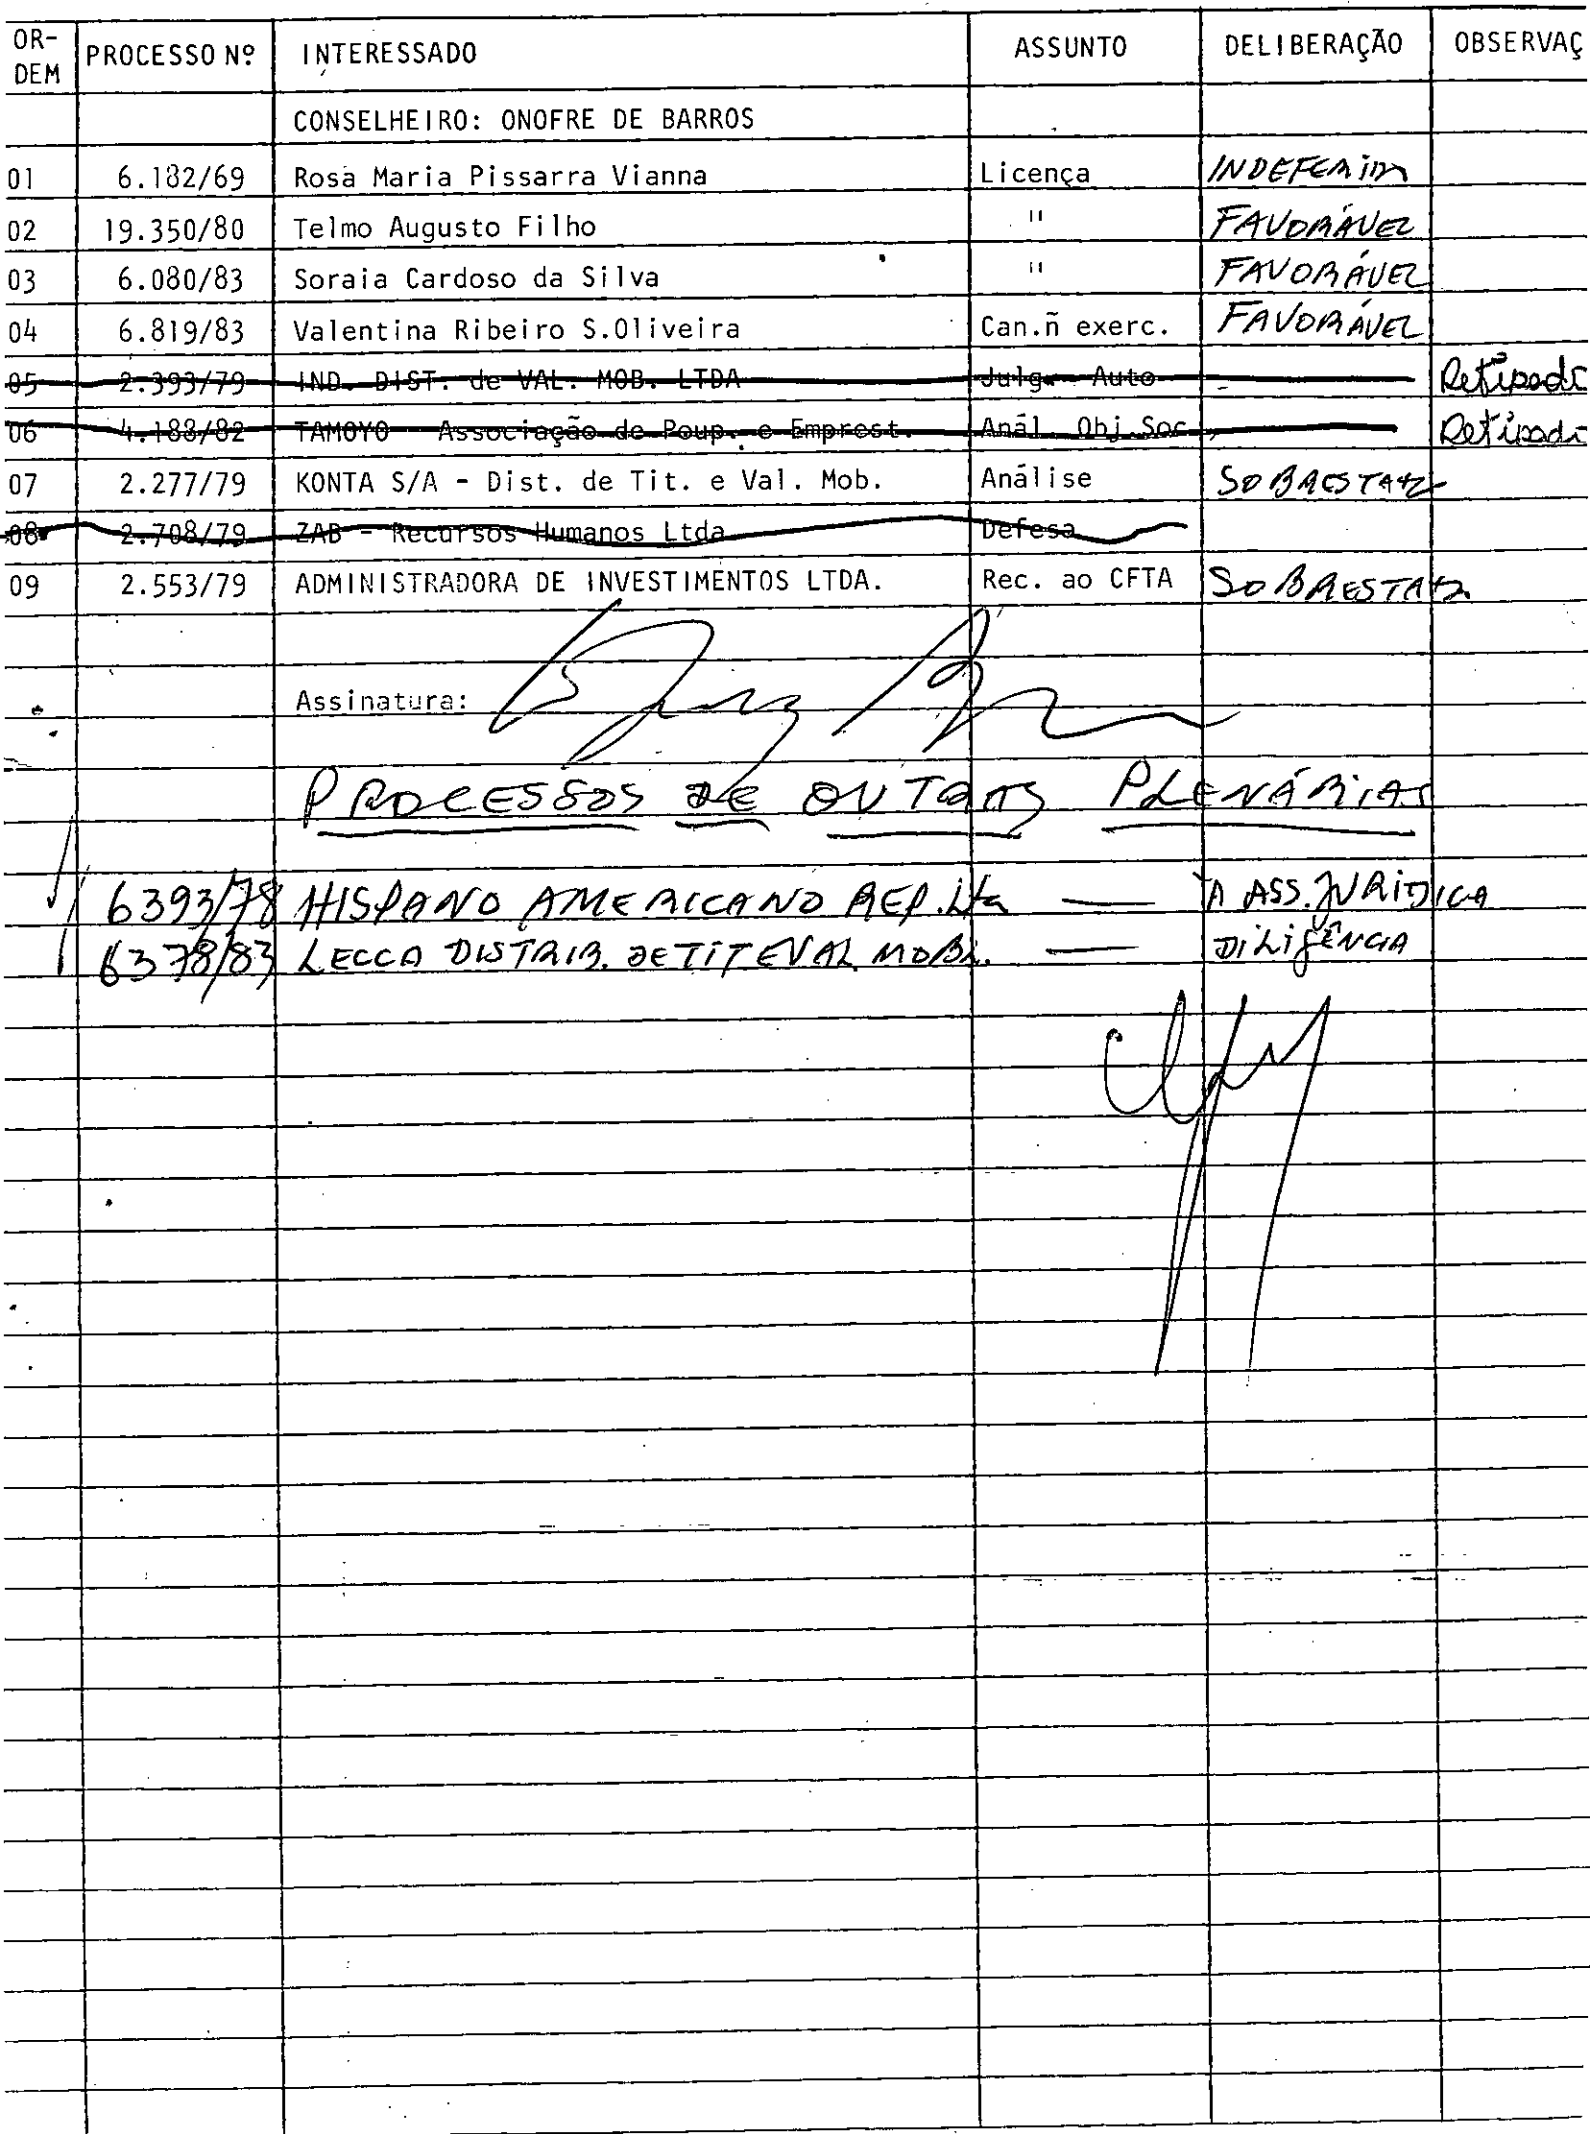 OR-DEM PROCESSO Nº INTERESSADO ASSUNTO DELIBERAÇÃO OBSERVAÇ
CONSELHEIRO: ONOFRE DE BARROS
01 6.182/69 Rosa Maria Pissarra Vianna Licença INDEFERIDO
02 19.350/80 Telmo Augusto Filho " FAVORÁVEL
03 6.080/83 Soraia Cardoso da Silva " FAVORÁVEL
04 6.819/83 Valentina Ribeiro S.Oliveira Can.ñ exerc. FAVORÁVEL
05 2.393/79 IND. DIST. de VAL. MOB. LTDA Julg. Auto Retirado
06 4.188/82 TAMOYO - Associação de Poup. e Emprest. Anál. Obj.Soc. Retirado
07 2.277/79 KONTA S/A - Dist. de Tit. e Val. Mob. Análise SOBRESTAR
08 2.708/79 ZAB - Recursos Humanos Ltda Defesa
09 2.553/79 ADMINISTRADORA DE INVESTIMENTOS LTDA. Rec. ao CFTA SOBRESTAR
Assinatura:
PROCESSOS DE OUTRAS PLENÁRIAS
6393/78 HISPANO AMERICANO REP. Lta — À ASS. JURÍDICA
6378/83 LECCA DISTRIB. DE TIT E VAL MOBI. — DILIGÊNCIA